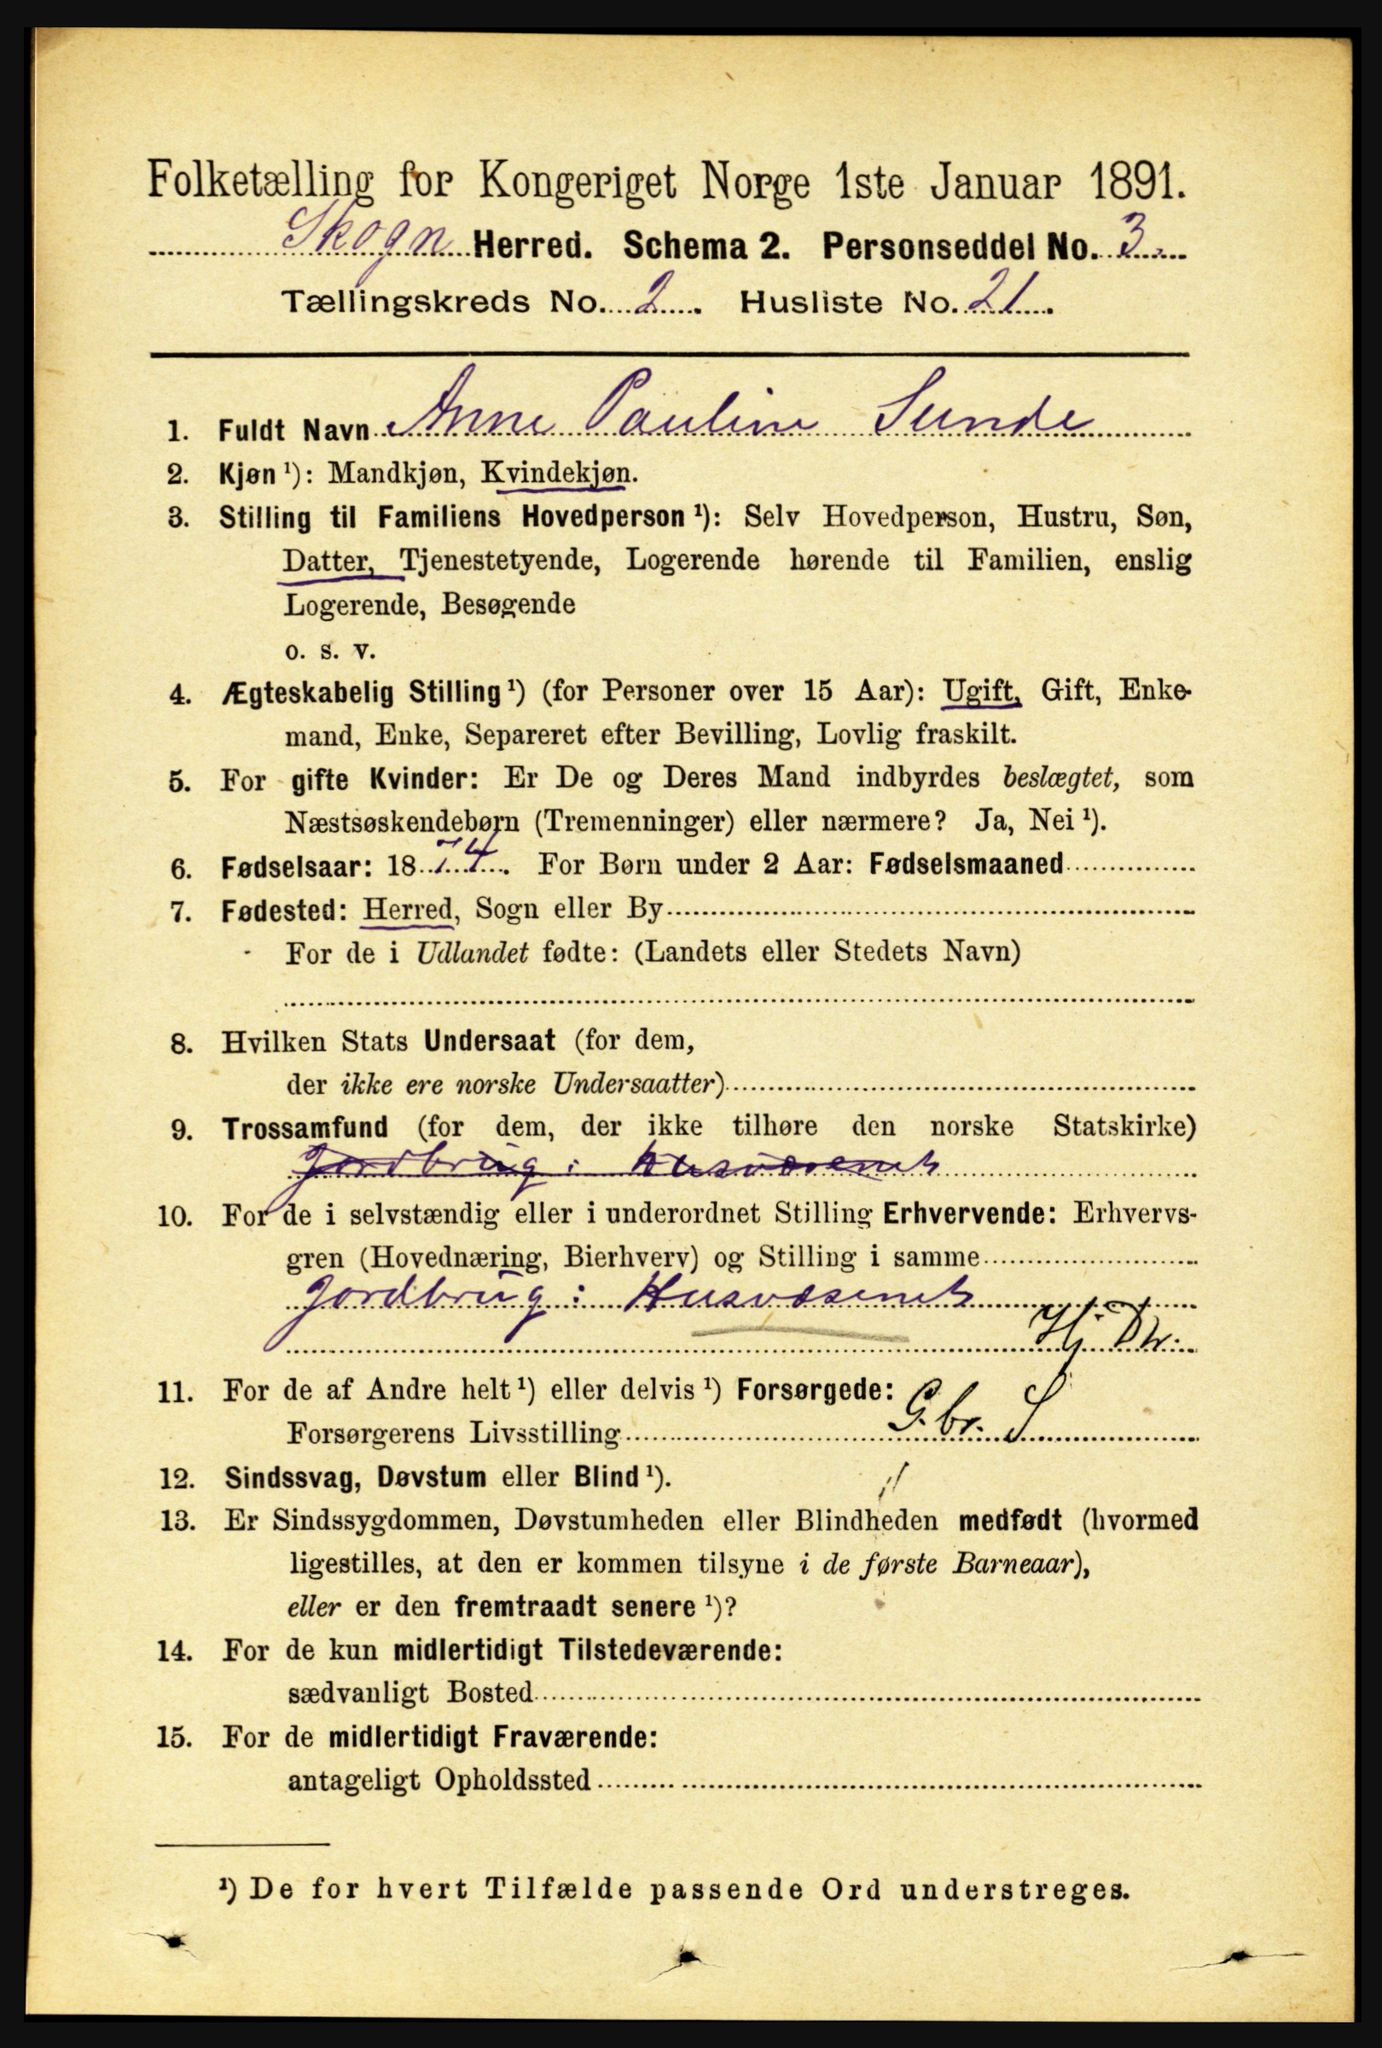 Folketælling for Kongeriget Norge 1ste Januar 1891.
Skogn Herred. Schema 2. Personseddel No. 3.
Tællingskreds No. 2. Husliste No. 21.
1. Fuldt Navn Anne Pauline Sunde
2. Kjøn ¹): Mandkjøn, Kvindekjøn.
3. Stilling til Familiens Hovedperson ¹): Selv Hovedperson, Hustru, Søn,
Datter, Tjenestetyende, Logerende hørende til Familien, enslig
Logerende, Besøgende
o. s. v.
4. Ægteskabelig Stilling ¹) (for Personer over 15 Aar): Ugift, Gift, Enke-
mand, Enke, Separeret efter Bevilling, Lovlig fraskilt.
5. For gifte Kvinder: Er De og Deres Mand indbyrdes beslægtet, som
Næstsøskendebørn (Tremenninger) eller nærmere? Ja, Nei ¹).
6. Fødselsaar: 1874. For Børn under 2 Aar: Fødselsmaaned
7. Fødested: Herred, Sogn eller By
For de i Udlandet fødte: (Landets eller Stedets Navn)
8. Hvilken Stats Undersaat (for dem,
der ikke ere norske Undersaatter)
9. Trossamfund (for dem, der ikke tilhøre den norske Statskirke)
Jordbrug: Husvæsenet
10. For de i selvstændig eller i underordnet Stilling Erhvervende: Erhvervs-
gren (Hovednæring, Bierhverv) og Stilling i samme
Jordbrug: Husvæsenet
Hj. Dtr.
11. For de af Andre helt ¹) eller delvis ¹) Forsørgede:
Forsørgerens Livsstilling G.br. S
12. Sindssvag, Døvstum eller Blind ¹).
13. Er Sindssygdommen, Døvstumheden eller Blindheden medfødt (hvormed
ligestilles, at den er kommen tilsyne i de første Barneaar),
eller er den fremtraadt senere ¹)?
14. For de kun midlertidigt Tilstedeværende:
sædvanligt Bosted
15. For de midlertidigt Fraværende:
antageligt Opholdssted
¹) De for hvert Tilfælde passende Ord understreges.